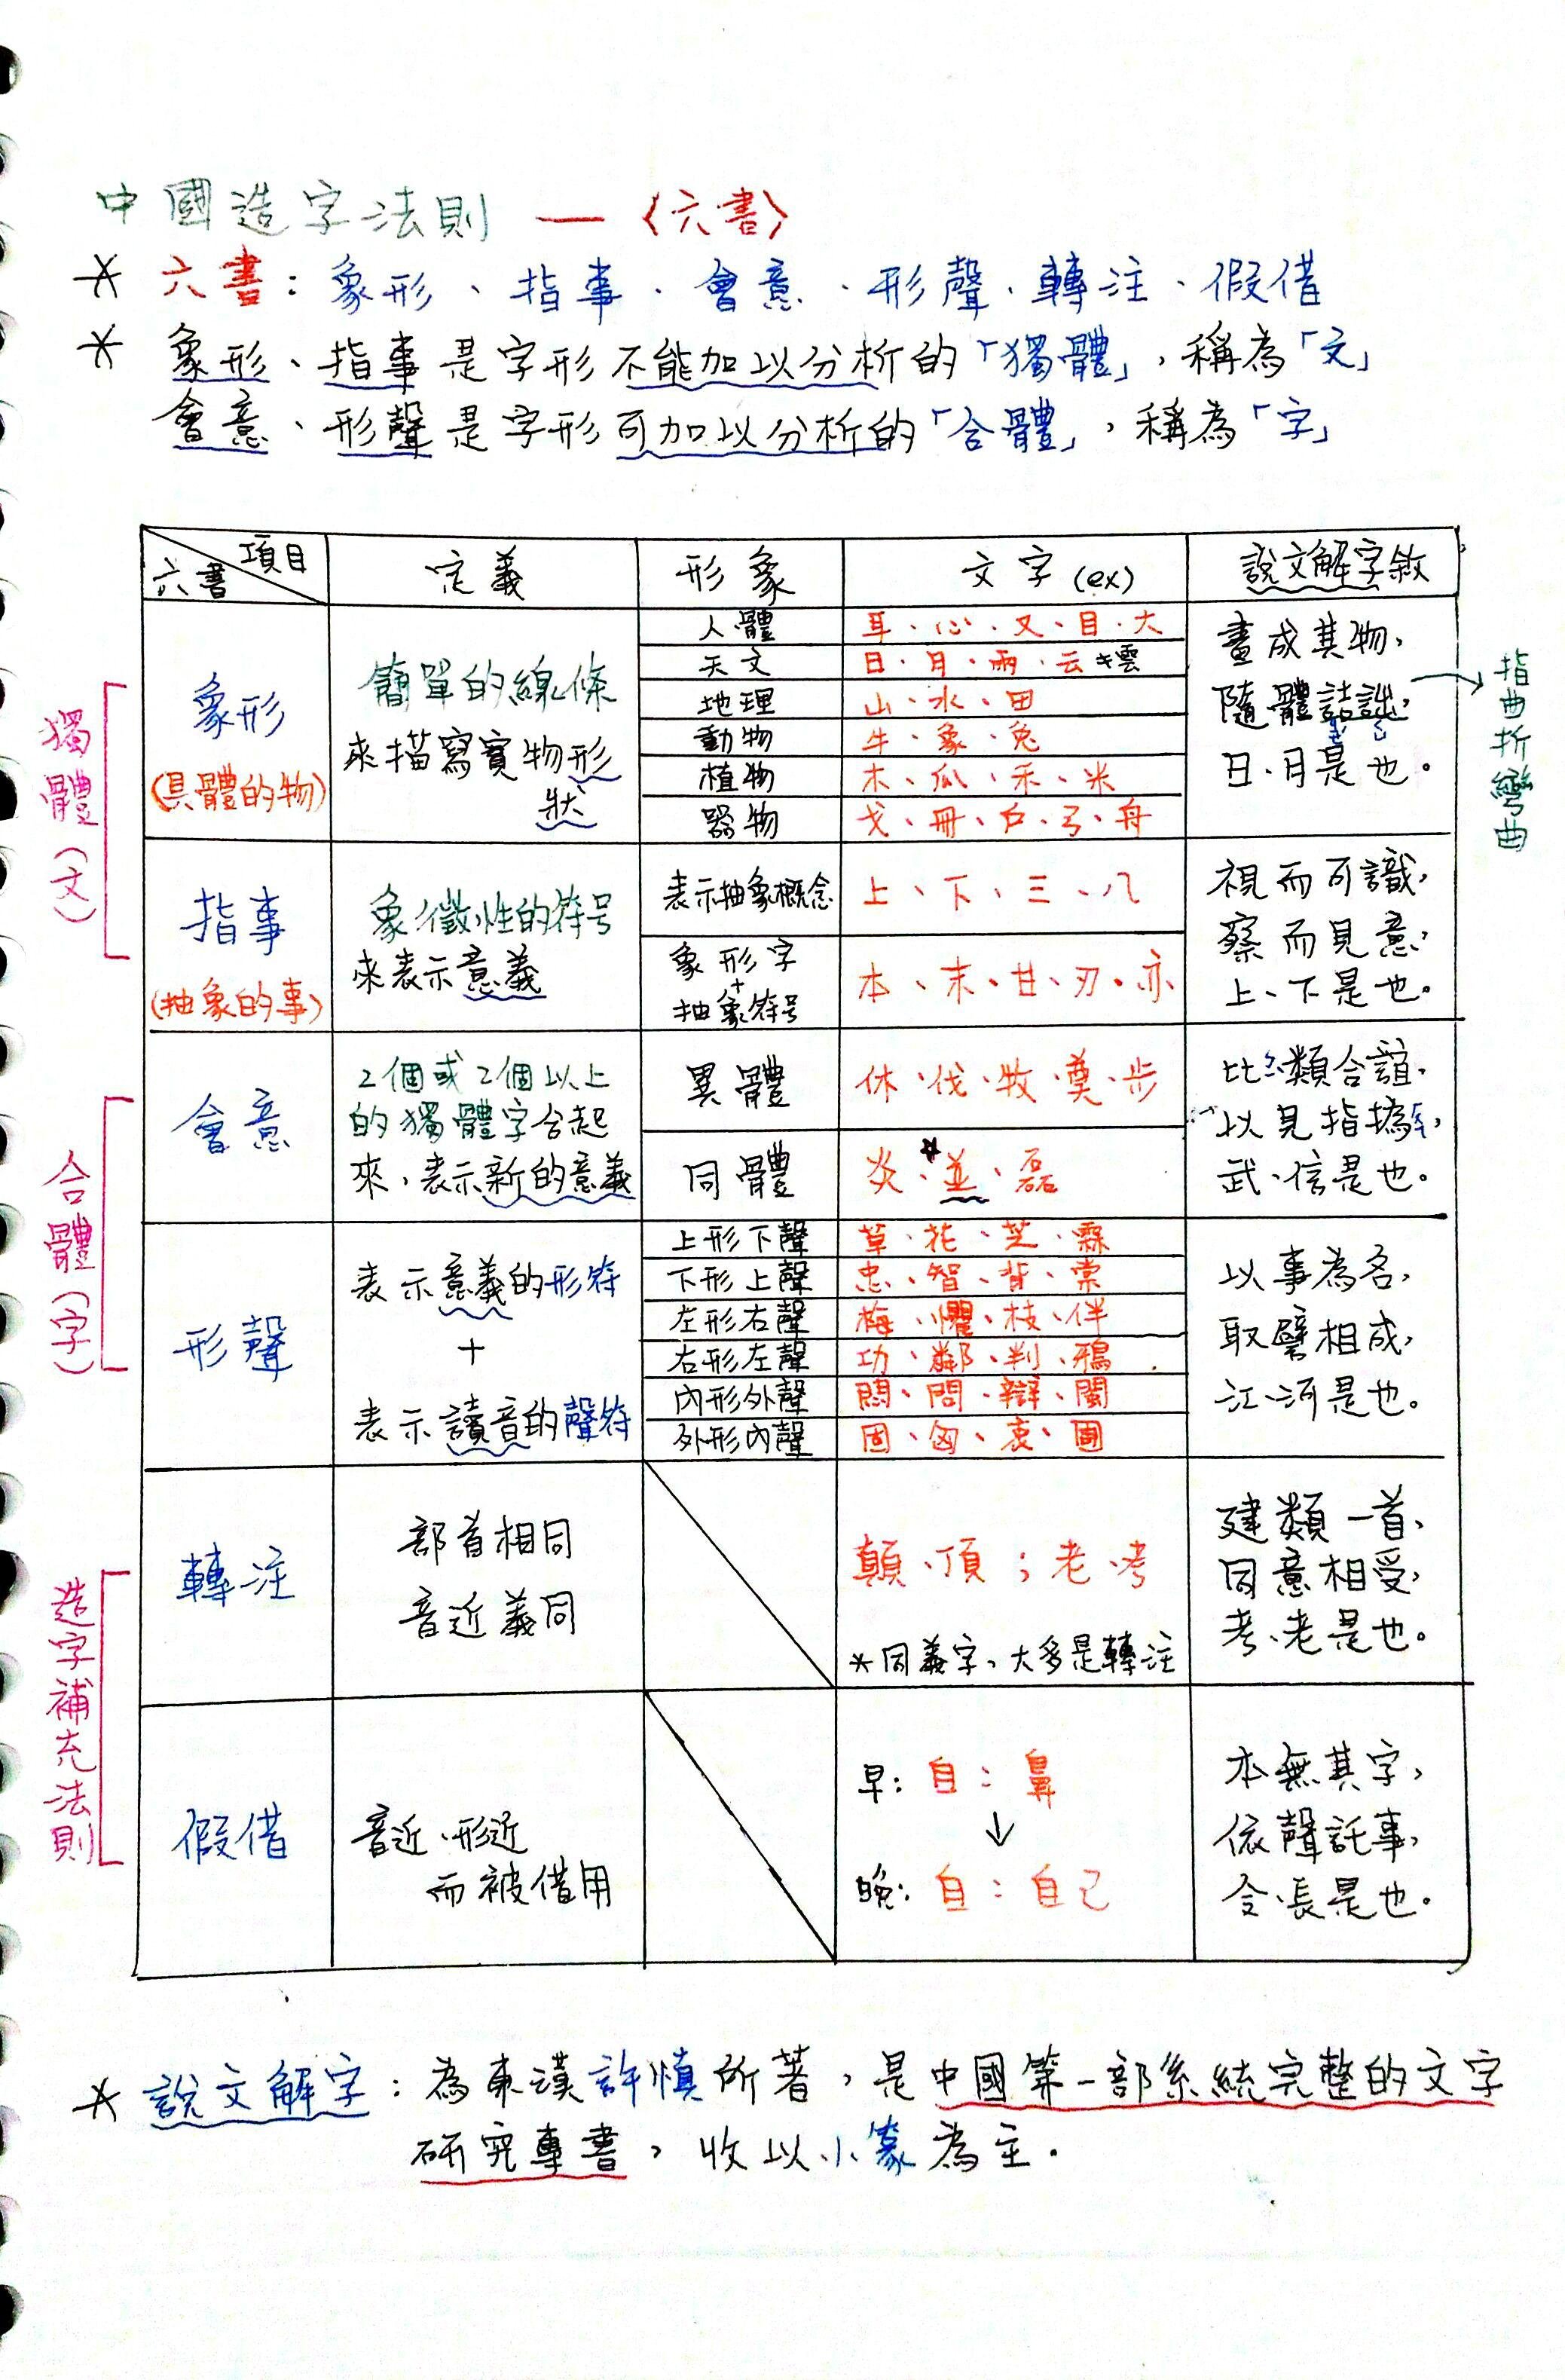 中國造字法則 — 〈六書〉
* 六書：象形、指事、會意、形聲、轉注、假借
* 象形、指事是字形不能加以分析的「獨體」，稱為「文」
會意、形聲是字形可加以分析的「合體」，稱為「字」
項目
六書
定義
形象
文字(ex)
說文解字敘
獨體(文)
象形
(具體的物)
簡單的線條
來描寫實物形
狀
人體
耳、心、又、目、大
天文
日、月、雨、云
雲
地理
山、水、田
動物
牛、象、兔
植物
木、瓜、禾、米
器物
戈、冊、戶、弓、舟
畫成其物，
隨體詰詘，
日、月是也。
→指曲折彎曲
指事
(抽象的事)
象徵性的符號
來表示意義
表示抽象概念
上、下、三、八
象形字
+
抽象符號
本、末、甘、刃、亦
視而可識，
察而見意，
上、下是也。
合體(字)
會意
2個或2個以上
的獨體字合起
來，表示新的意義
異體
休、伐、牧、奠、步
同體
炎、並、磊
比類合誼，
以見指撝，
武、信是也。
形聲
表示意義的形符
+
表示讀音的聲符
上形下聲
草、花、芝、霖
下形上聲
忠、智、背、棠
左形右聲
梅、懼、枝、伴
右形左聲
功、鄰、判、鴉
內形外聲
悶、問、辯、聞
外形內聲
固、匈、衷、圃
以事為名，
取譬相成，
江、河是也。
造字補充法則
轉注
部首相同
音近義同
顛、頂；老、考
*同義字、大多是轉注
建類一首，
同意相受，
考、老是也。
假借
音近、形近
而被借用
早：自：鼻
↓
晚：自：自己
本無其字，
依聲託事，
令、長是也。
* 說文解字：為東漢許慎所著，是中國第一部系統完整的文字
研究專書，收以小篆為主.